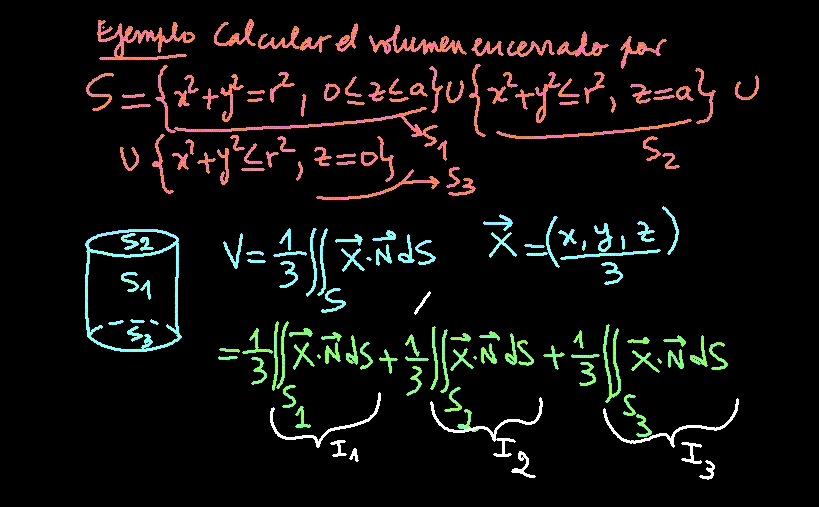 Ejemplo Calcular el volumen encerrado por
S = {x²+y²=r², 0≤z≤a} ∪ {x²+y²≤r², z=a} ∪
S₁
S₂
∪ {x²+y²≤r², z=0}
S₃
S₂
S₁
S₃
V = 1/3 ∬_S X⃗·N⃗ dS    X⃗ = (x, y, z)/3
= 1/3 ∬_S₁ X⃗·N⃗ dS + 1/3 ∬_S₂ X⃗·N⃗ dS + 1/3 ∬_S₃ X⃗·N⃗ dS
I₁ I₂ I₃